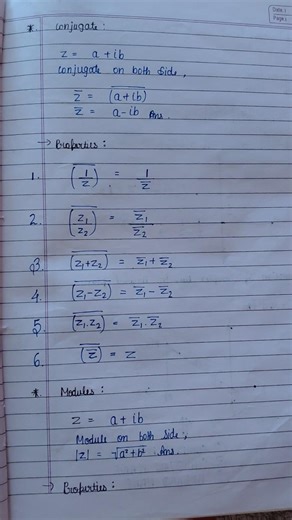 Date :
Page :
* Conjugate :
z = a + ib
Conjugate on both side,
z̅ = \overline{(a + ib)}
z̅ = a - ib Ans.
→ Properties :
1. \overline{(1/z)} = 1/z̅
2. \overline{(z₁/z₂)} = z̅₁/z̅₂
3. \overline{(z₁+z₂)} = z̅₁ + z̅₂
4. \overline{(z₁-z₂)} = z̅₁ - z̅₂
5. \overline{(z₁.z₂)} = z̅₁.z̅₂
6. \overline{(z̅)} = z
* Modules :
z = a + ib
Module on both side,
|z| = √a²+b² Ans.
→ Properties :